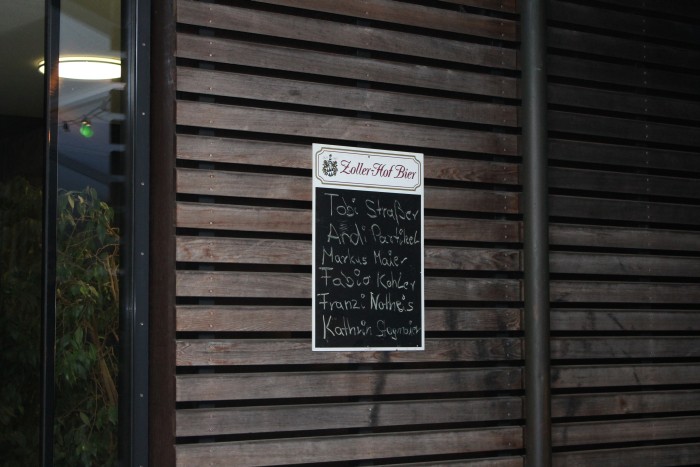 Zoller-Hof Bier
Tobi Straßer
Andi Partikel
Markus Maier
Fabio Kohler
Franzi Notheis
Kathrin